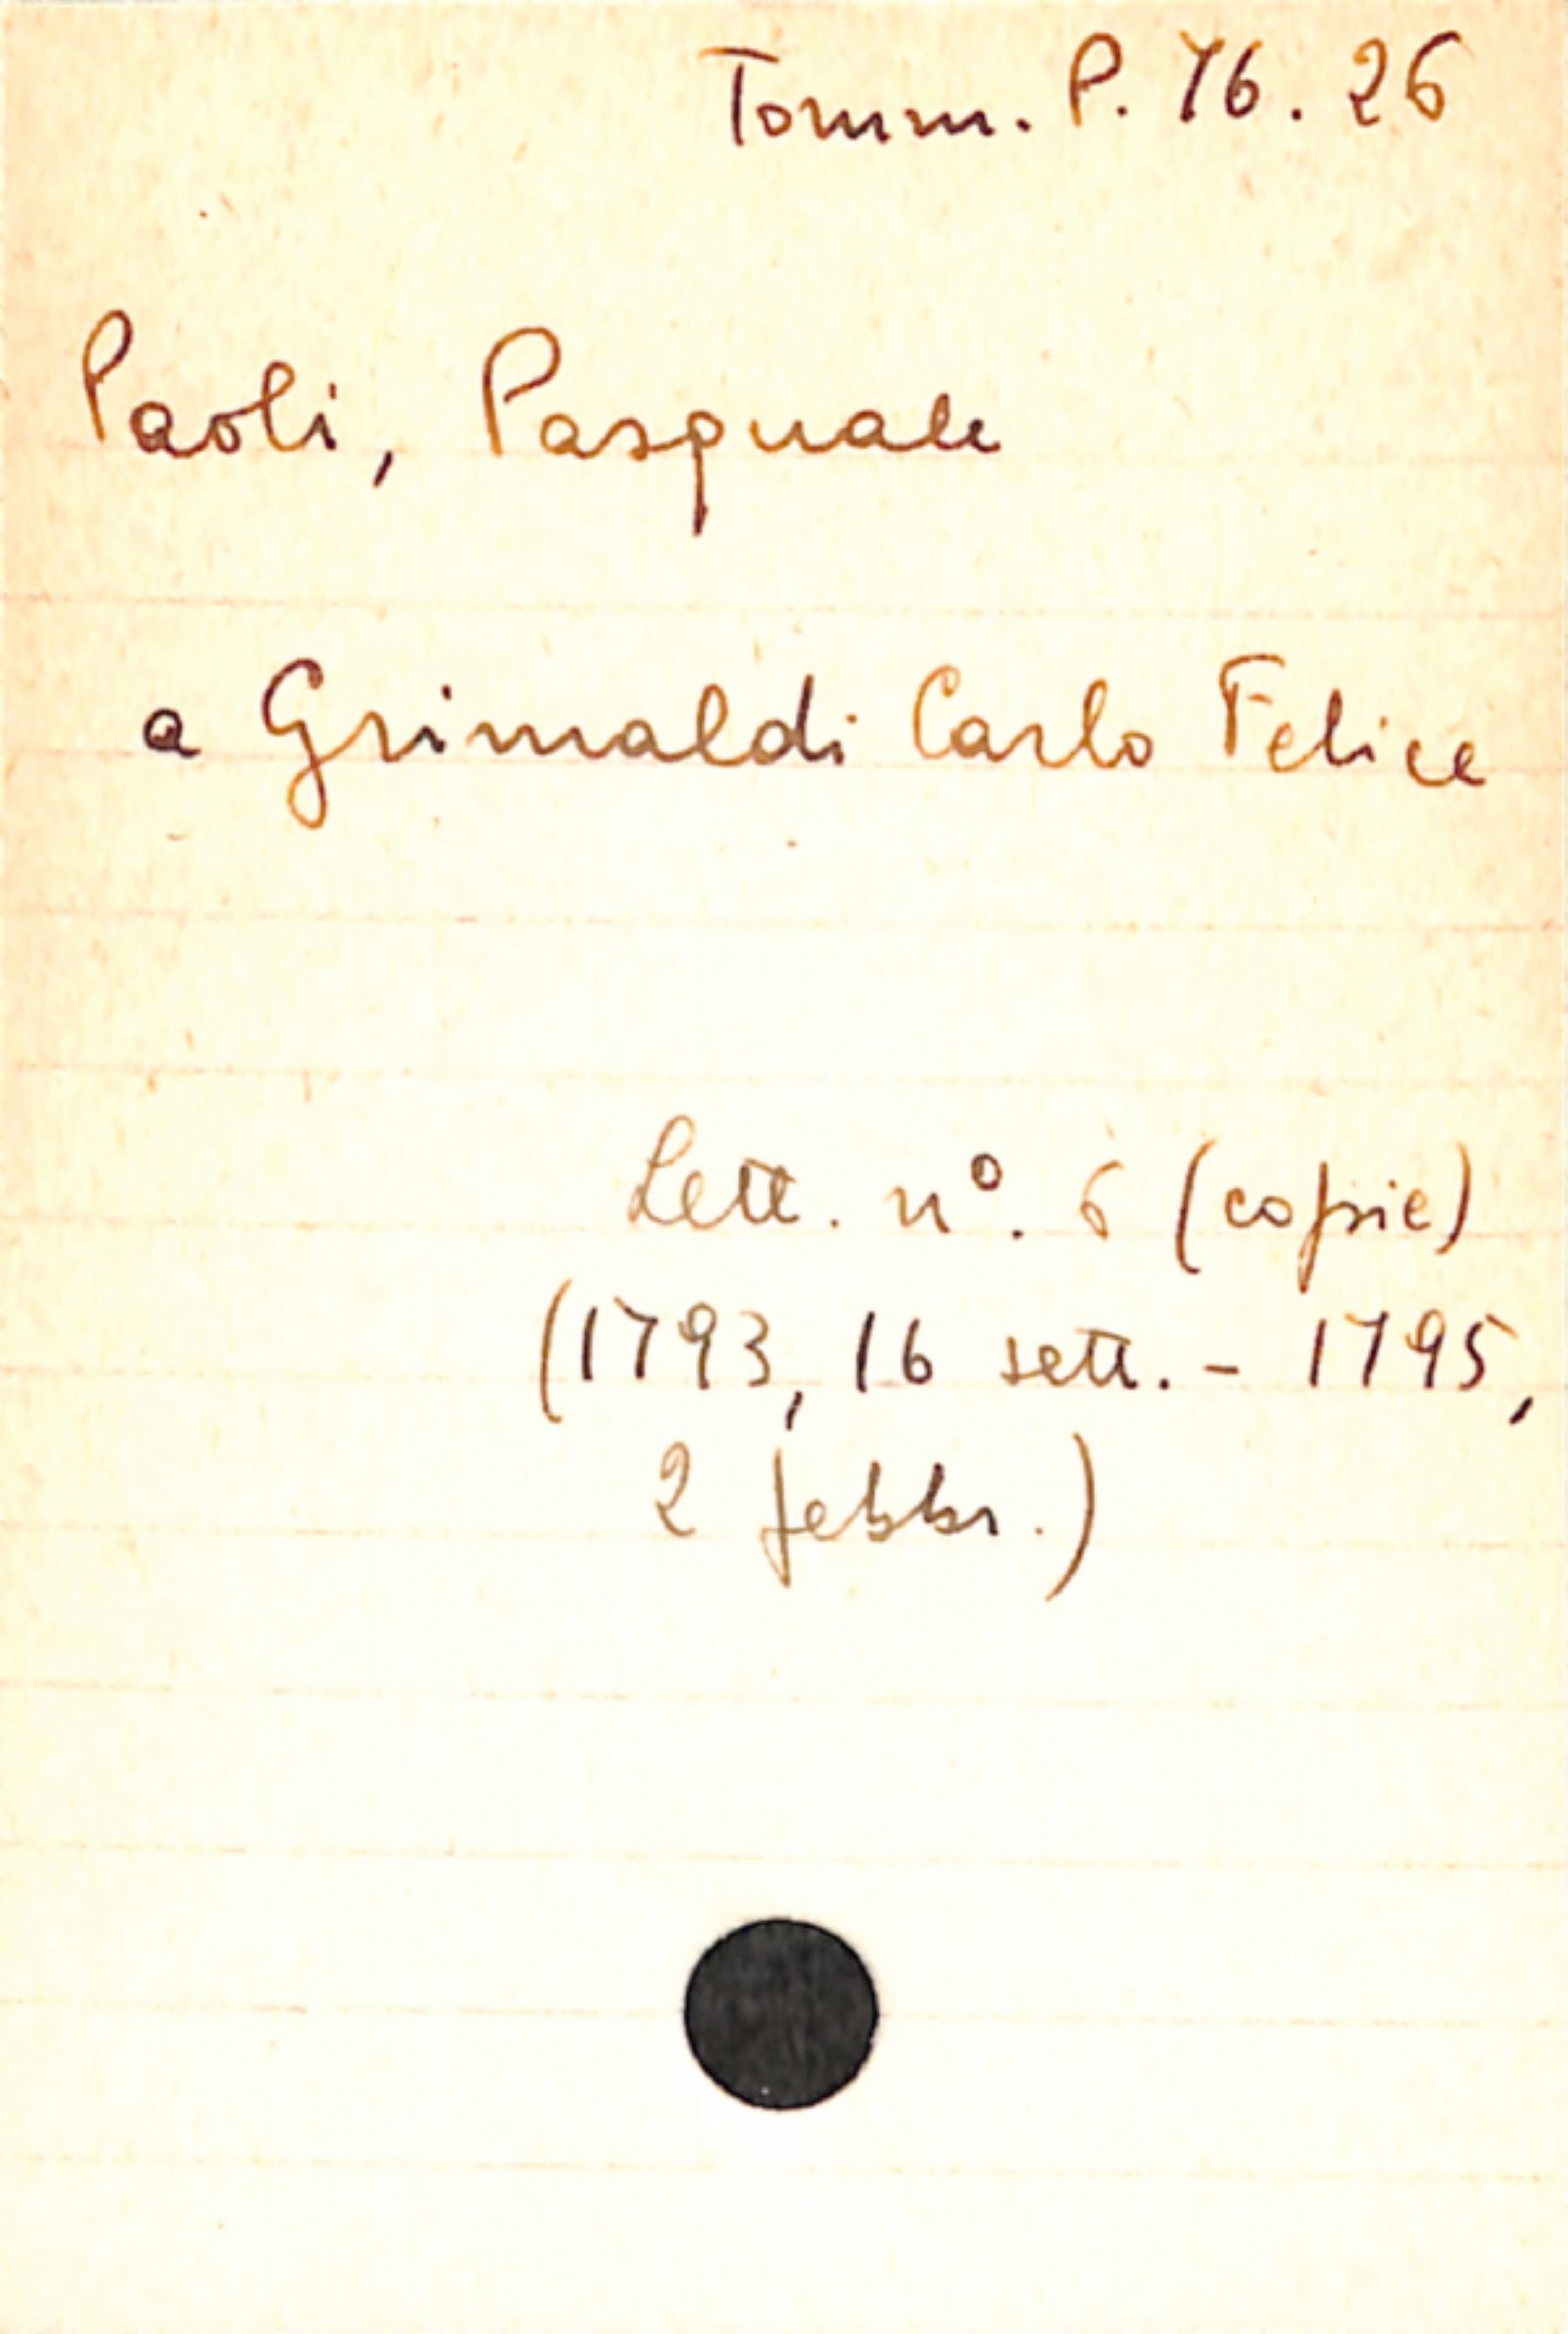 Tomm. P. 76. 26
Paoli, Pasquale
a Grimaldi Carlo Felice
Lett. nº. 6 (copie)
(1793, 16 sett. - 1795,
2 febbr.)